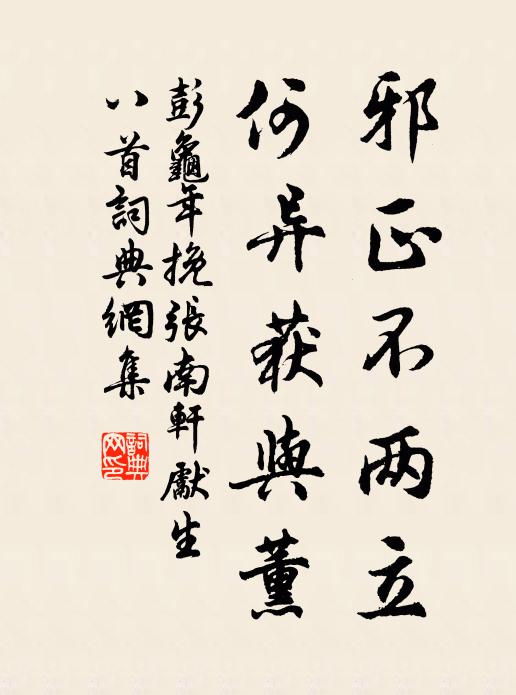 邪正不两立
何异莸與薰
彭龜年挽張南軒獻生
八首詞典網集
詞典网印